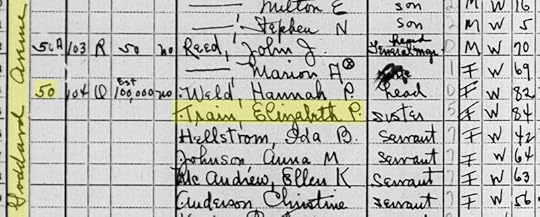 Goddard Avenue
Milton E son 2 M W 16
Stephen N son 2 M W 5
50A 103 R 50 no Reed, John J. Head 0 M W 70
Marion A ⊗ 1 F W 69
50 104 O Est 100,000 no Weld, Hannah P. head 0 F W 82
Train, Elizabeth P. sister 5 F W 84
Hellstrom, Ida B. Servant 7 F W 42
Johnson Anna M Servant 7 F W 64
McAndrew, Ellen K Servant 7 F W 63
Anderson Christine Servant 7 F W 56